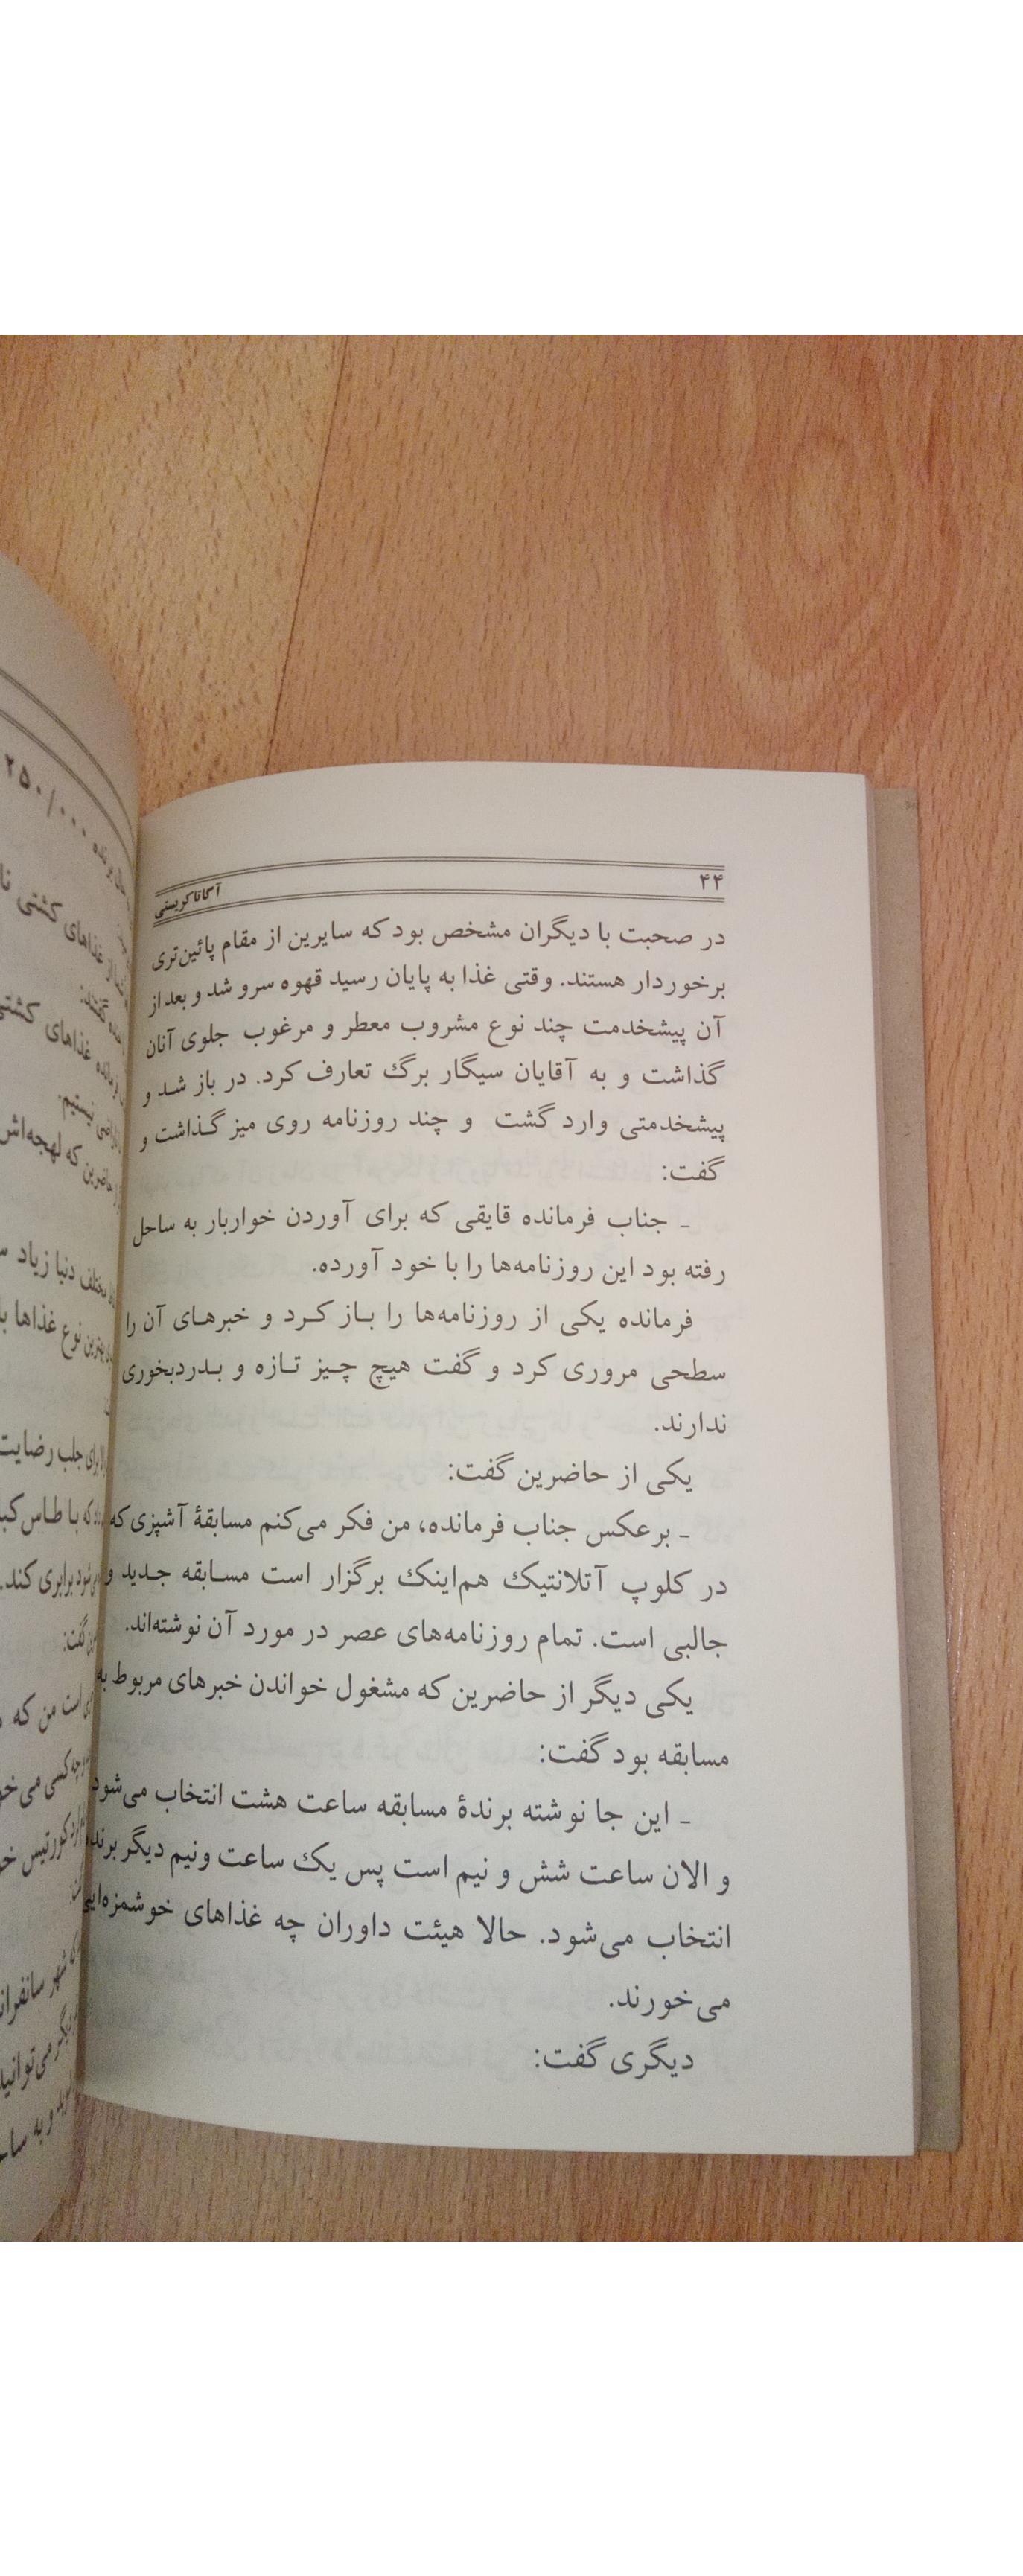 ۴۴
آگاتا کریستی
در صحبت با دیگران مشخص بود که سایرین از مقام پائین‌تری
برخوردار هستند. وقتی غذا به پایان رسید قهوه سرو شد و بعد از
آن پیشخدمت چند نوع مشروب معطر و مرغوب جلوی آنان
گذاشت و به آقایان سیگار برگ تعارف کرد. در باز شد و
پیشخدمتی وارد گشت و چند روزنامه روی میز گذاشت و
گفت:
ـ جناب فرمانده قایقی که برای آوردن خواربار به ساحل
رفته بود این روزنامه‌ها را با خود آورده.
فرمانده یکی از روزنامه‌ها را باز کرد و خبرهای آن را
سطحی مروری کرد و گفت هیچ چیز تازه و بدردبخوری
ندارند.
یکی از حاضرین گفت:
ـ برعکس جناب فرمانده، من فکر می‌کنم مسابقهٔ آشپزی که
در کلوپ آتلانتیک هم‌اینک برگزار است مسابقه جدید و
جالبی است. تمام روزنامه‌های عصر در مورد آن نوشته‌اند.
یکی دیگر از حاضرین که مشغول خواندن خبرهای مربوط به
مسابقه بود گفت:
ـ این جا نوشته برندهٔ مسابقه ساعت هشت انتخاب می‌شود
و الان ساعت شش و نیم است پس یک ساعت ونیم دیگر برنده
انتخاب می‌شود. حالا هیئت داوران چه غذاهای خوشمزه‌ایی
می‌خورند.
دیگری گفت:
۲۵۰/۰۰۰
غذاهای کشتی
غذاهای کشتی
نیستیم.
حاضرین که لهجه‌اش
مختلف دنیا زیاد
بهترین نوع غذاها
برای جلب رضایت
که با طاس
برابری کند.
گفت:
است من که
چه کسی
کورتیس
شهر
دیگر می‌توانید
و به